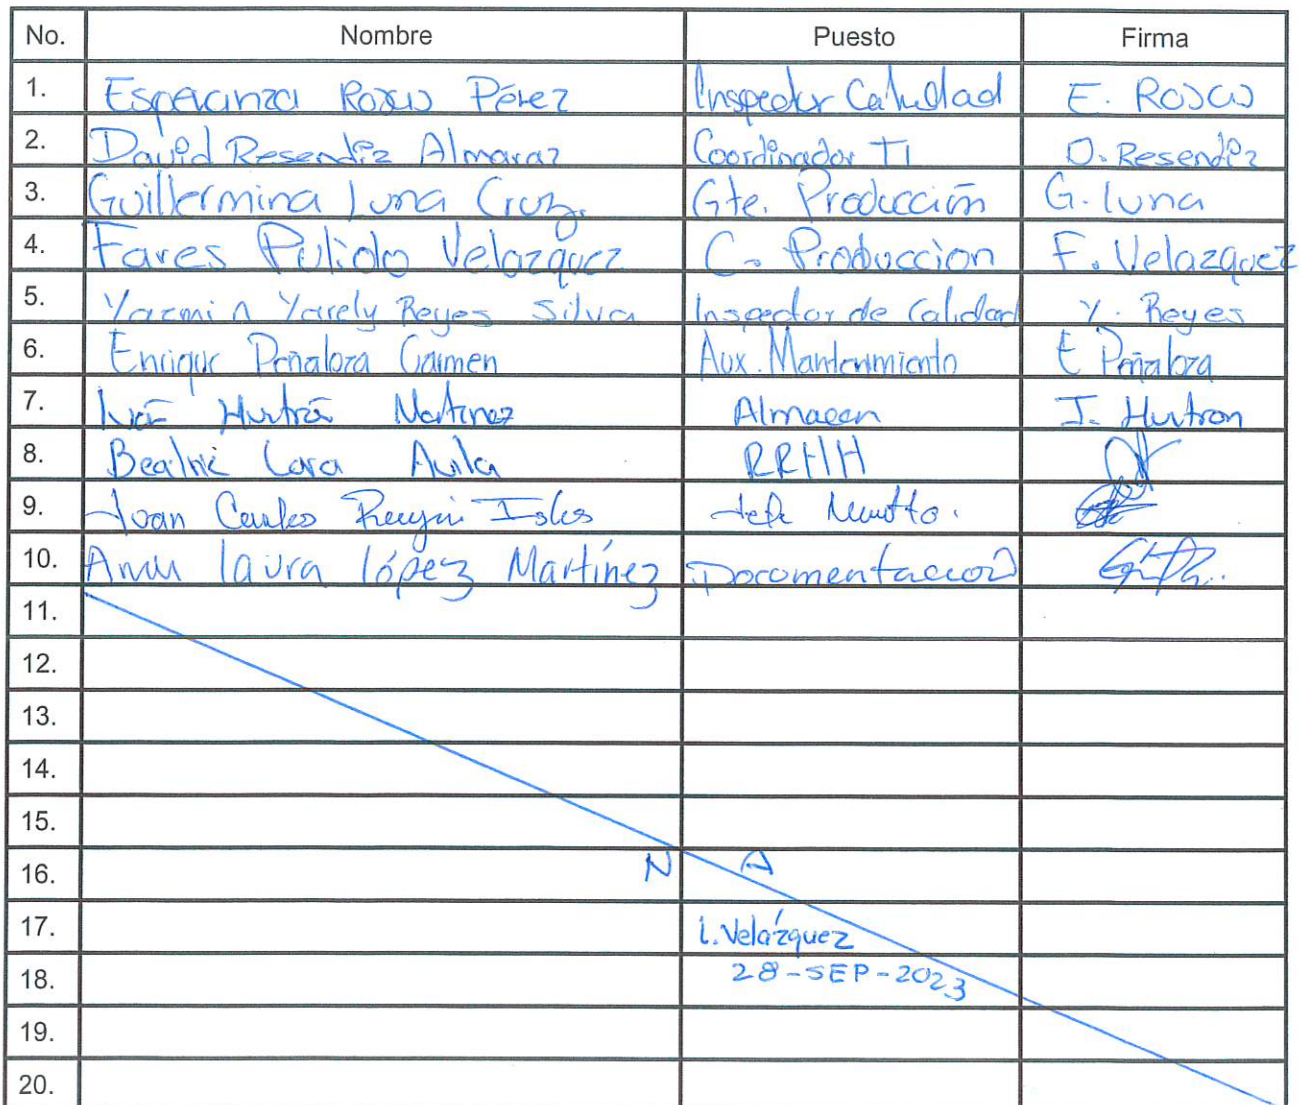 No. Nombre Puesto Firma
1. Esperanza Rojas Pérez Inspector Calidad E. Rojas
2. David Resendiz Almaraz Coordinador TI D. Resendiz
3. Guillermina Luna Cruz. Gte. Producción G. Luna
4. Fares Pulido Velazquez C. Produccion F. Velazquez
5. Yazmin Yarely Reyes Silva Inspector de Calidad Y. Reyes
6. Enrique Peñaloza Carmen Aux. Mantenimiento E Peñaloza
7. Martinez Almacen I. Hurtron
8. Beatriz Lara Avila RRHH
9. Juan Carlos Islas Jefe Mantto.
10. Ana laura lópez Martínez Documentacion
11.
12.
13.
14.
15.
16. N A
17. L. Velázquez
18. 28-SEP-2023
19.
20.